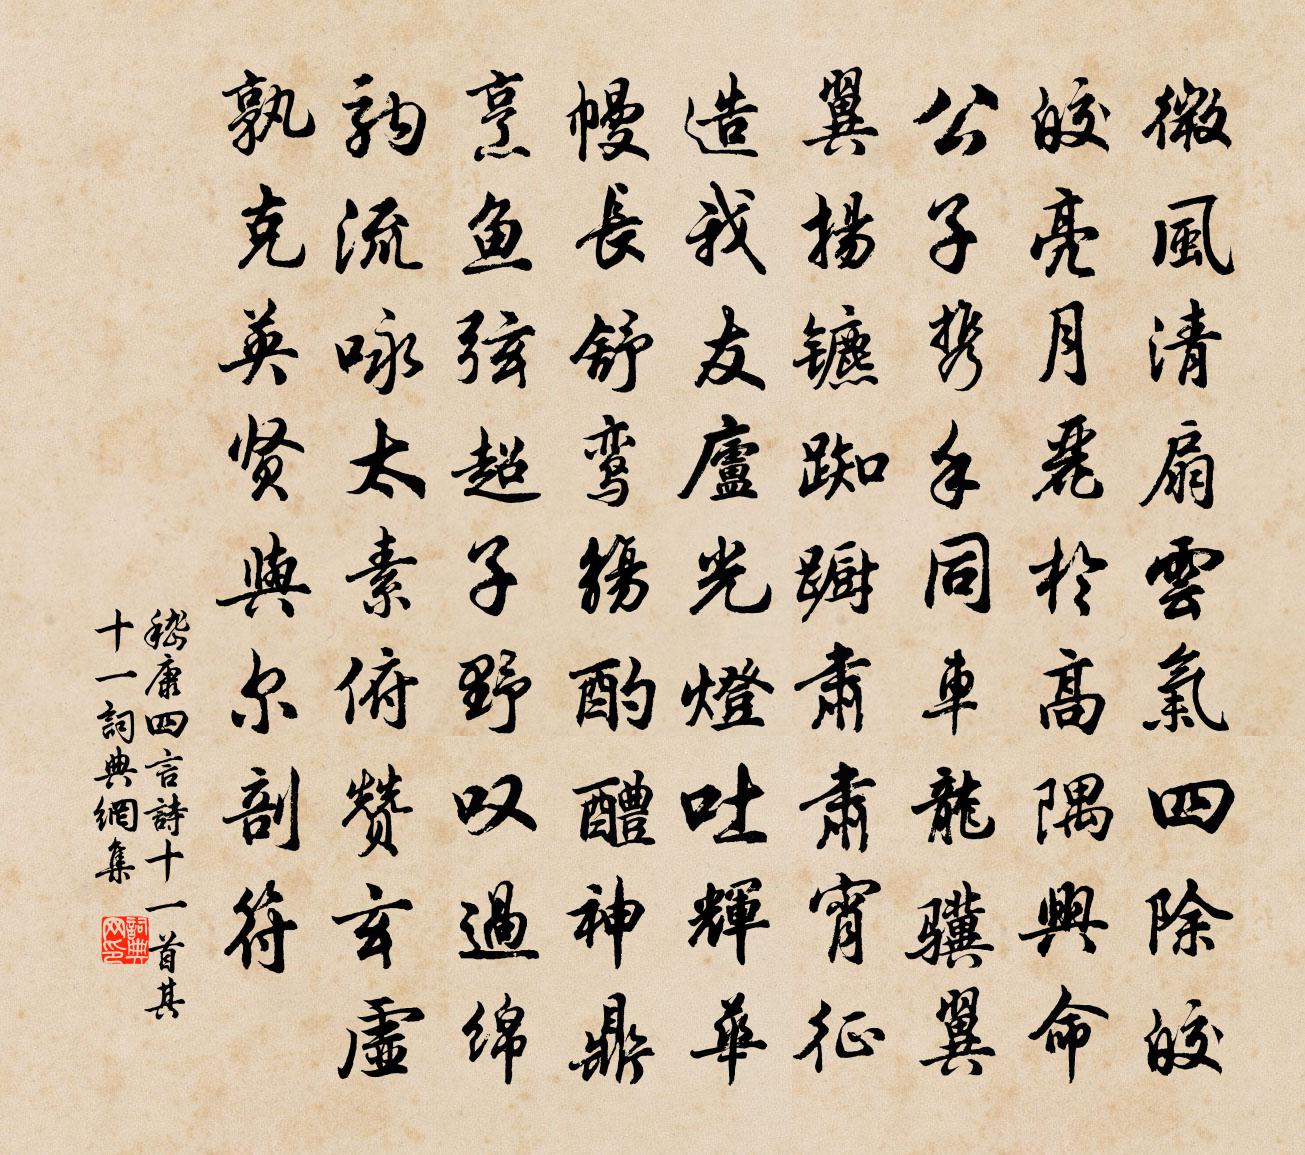 微風清扇雲氣四除皎
皎亮月麗於高隅興命
公子携手同車龍骥翼
翼揚镳踟蹰肅肅宵征
造我友廬光燈吐輝華
幔長舒鸾觴酌醴神鼎
烹鱼弦超子野叹過绵
驹流咏太素俯赞玄虚
孰克英贤與尔剖符
嵇康四言詩十一首其
十一詞典網集
詞典网印